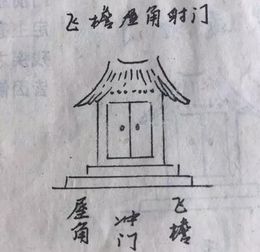 飞檐屋角射门
屋角
冲门
飞檐